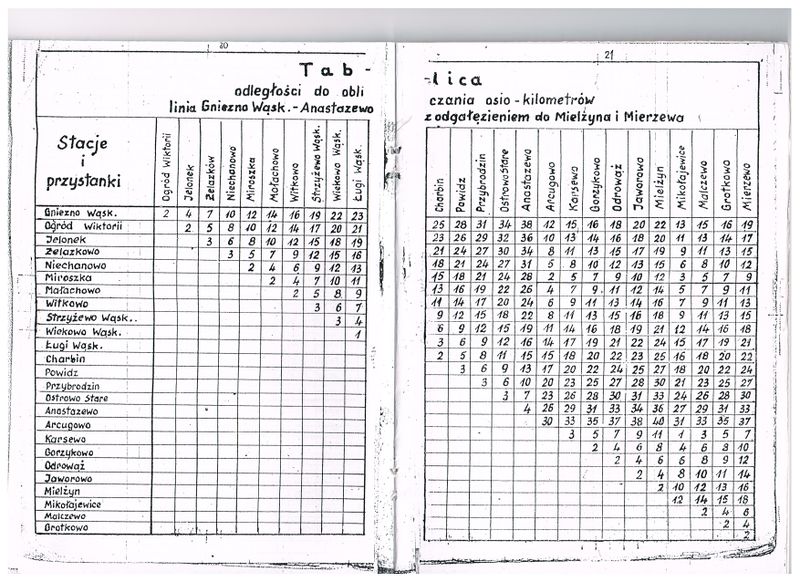 20
Tab-
odległości do obli
linia Gniezno Wąsk.-Anastazewo
Stacje
i
przystanki
Ogród Wiktorii
Jelonek
Żelazków
Niechanowo
Miroszka
Małachowo
Witkowo
Strzyżewo Wąsk.
Wiekowo Wąsk.
Ługi Wąsk.
Gniezno Wąsk. 2 4 7 10 12 14 16 19 22 23
Ogród Wiktorii 2 5 8 10 12 14 17 20 21
Jelonek 3 6 8 10 12 15 18 19
Żelazkowo 3 5 7 9 12 15 16
Niechanowo 2 4 6 9 12 13
Miroszka 2 4 7 10 11
Małachowo 2 5 8 9
Witkowo 3 6 7
Strzyżewo Wąsk.. 3 4
Wiekowo Wąsk. 1
Ługi Wąsk.
Charbin
Powidz
Przybrodzin
Ostrowo Stare
Anastazewo
Arcugowo
Karsewo
Gorzykowo
Odrowąż
Jaworowo
Mielżyn
Mikołajewice
Malczewo
Grotkowo
21
-lica
czania osio-kilometrów
z odgałęzieniem do Mielżyna i Mierzewa
Charbin
Powidz
Przybrodzin
Ostrowo Stare
Anastazewo
Arcugowo
Karsewo
Gorzykowo
Odrowąż
Jaworowo
Mielżyn
Mikołajewice
Malczewo
Grotkowo
Mierzewo
25 28 31 34 38 12 15 16 18 20 22 13 15 16 19
23 26 29 32 36 10 13 14 16 18 20 11 13 14 17
21 24 27 30 34 8 11 13 15 17 19 9 11 13 15
18 21 24 27 31 5 8 10 12 13 15 6 8 10 12
15 18 21 24 28 2 5 7 9 10 12 3 5 7 9
13 16 19 22 26 4 7 9 11 12 14 5 7 9 11
11 14 17 20 24 6 9 11 13 14 16 7 9 11 13
9 12 15 18 22 8 11 13 15 16 18 9 11 13 15
6 9 12 15 19 11 14 16 18 19 21 12 14 16 18
3 6 9 12 16 14 17 19 21 22 24 15 17 19 21
2 5 8 11 15 15 18 20 22 23 25 16 18 20 22
3 6 9 13 17 20 22 24 25 27 18 20 22 24
3 6 10 20 23 25 27 28 30 21 23 25 27
3 7 23 26 28 30 31 33 24 26 28 30
4 26 29 31 33 34 36 27 29 31 33
30 33 35 37 38 40 31 33 35 37
3 5 7 9 11 1 3 5 7
2 4 6 8 4 6 8 10
2 4 6 6 8 9 12
2 4 8 10 11 14
2 10 12 13 16
12 14 15 18
2 4 6
2 4
2